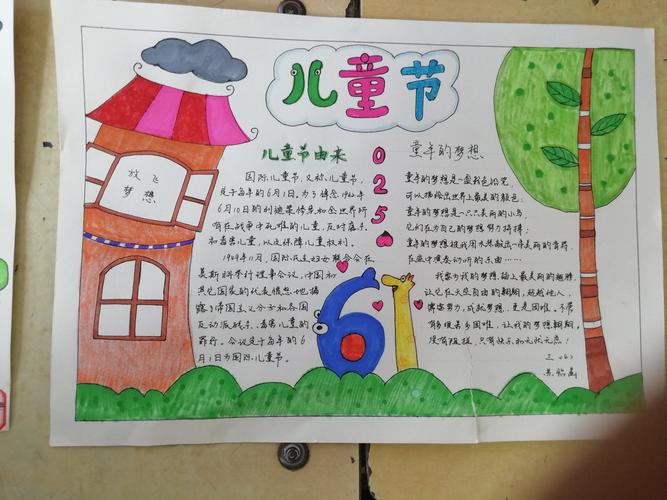 儿童节
放飞
梦想
儿童节由来
国际儿童节,又称儿童节,
定于每年的6月1日。为了悼念1942年
6月10日的利迪策惨案和全世界所
有在战争中死难的儿童,反对虐杀
和毒害儿童,以及保障儿童权利。
1949年11月,国际民主妇女联合会在
莫斯科举行理事会议,中国和
其它国家的代表愤怒地揭
露了帝国主义分子和各国
反动派残杀、毒害儿童的
罪行。会议定于每年的6
月1日为国际儿童节。
0
2
5
6 1
童年的梦想
童年的梦想是一盒彩色铅笔,
可以描绘出世界上最美的颜色;
童年的梦想是一只只美丽的小鸟,
它们在为自己的梦想努力拼搏;
童年的梦想
我要为我的梦想插上最美丽的翅膀,
让它在天空自由的翱翔,超越他人,
努力,成就梦想,更是困难。不管
有多艰辛多困难,让我的梦想翱翔,
没有阻拦,只有快乐和无忧无虑!
三(6)